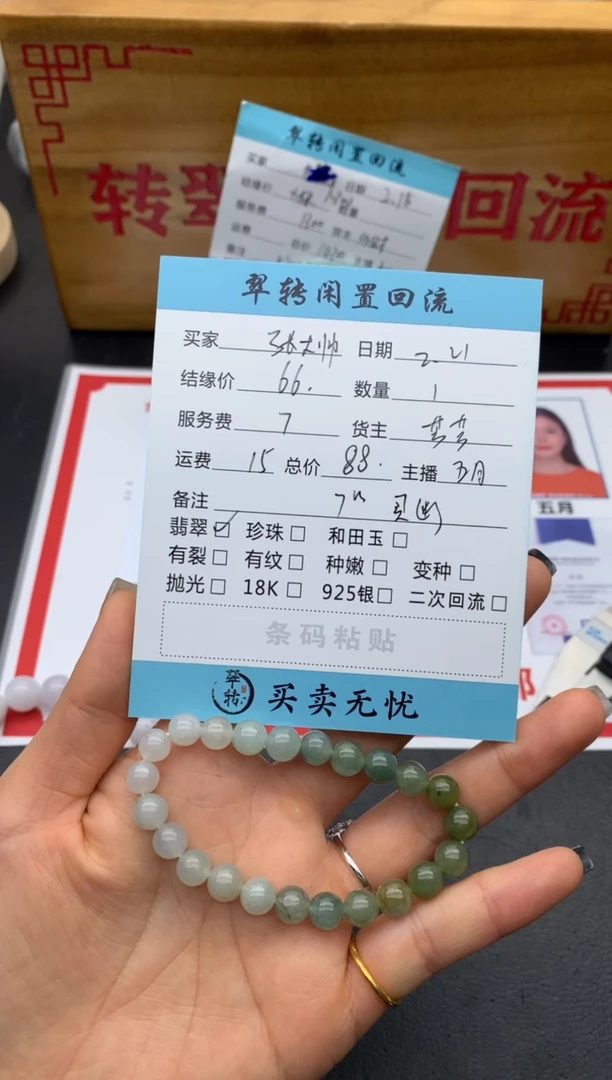 转翠 回流
翠转闲置回流
买家 日期 2.13
结缘价 数量
服务费 货主
运费 总价 主播
备注
翠转闲置回流
买家 张大帅 日期 2.21
结缘价 66. 数量 1
服务费 7 货主 芸芸
运费 15 总价 88. 主播 五月
备注
翡翠☑ 珍珠□ 和田玉□
有裂□ 有纹□ 种嫩□ 变种□
抛光□ 18K□ 925银□ 二次回流□
条码粘贴
翠转 买卖无忧
五月